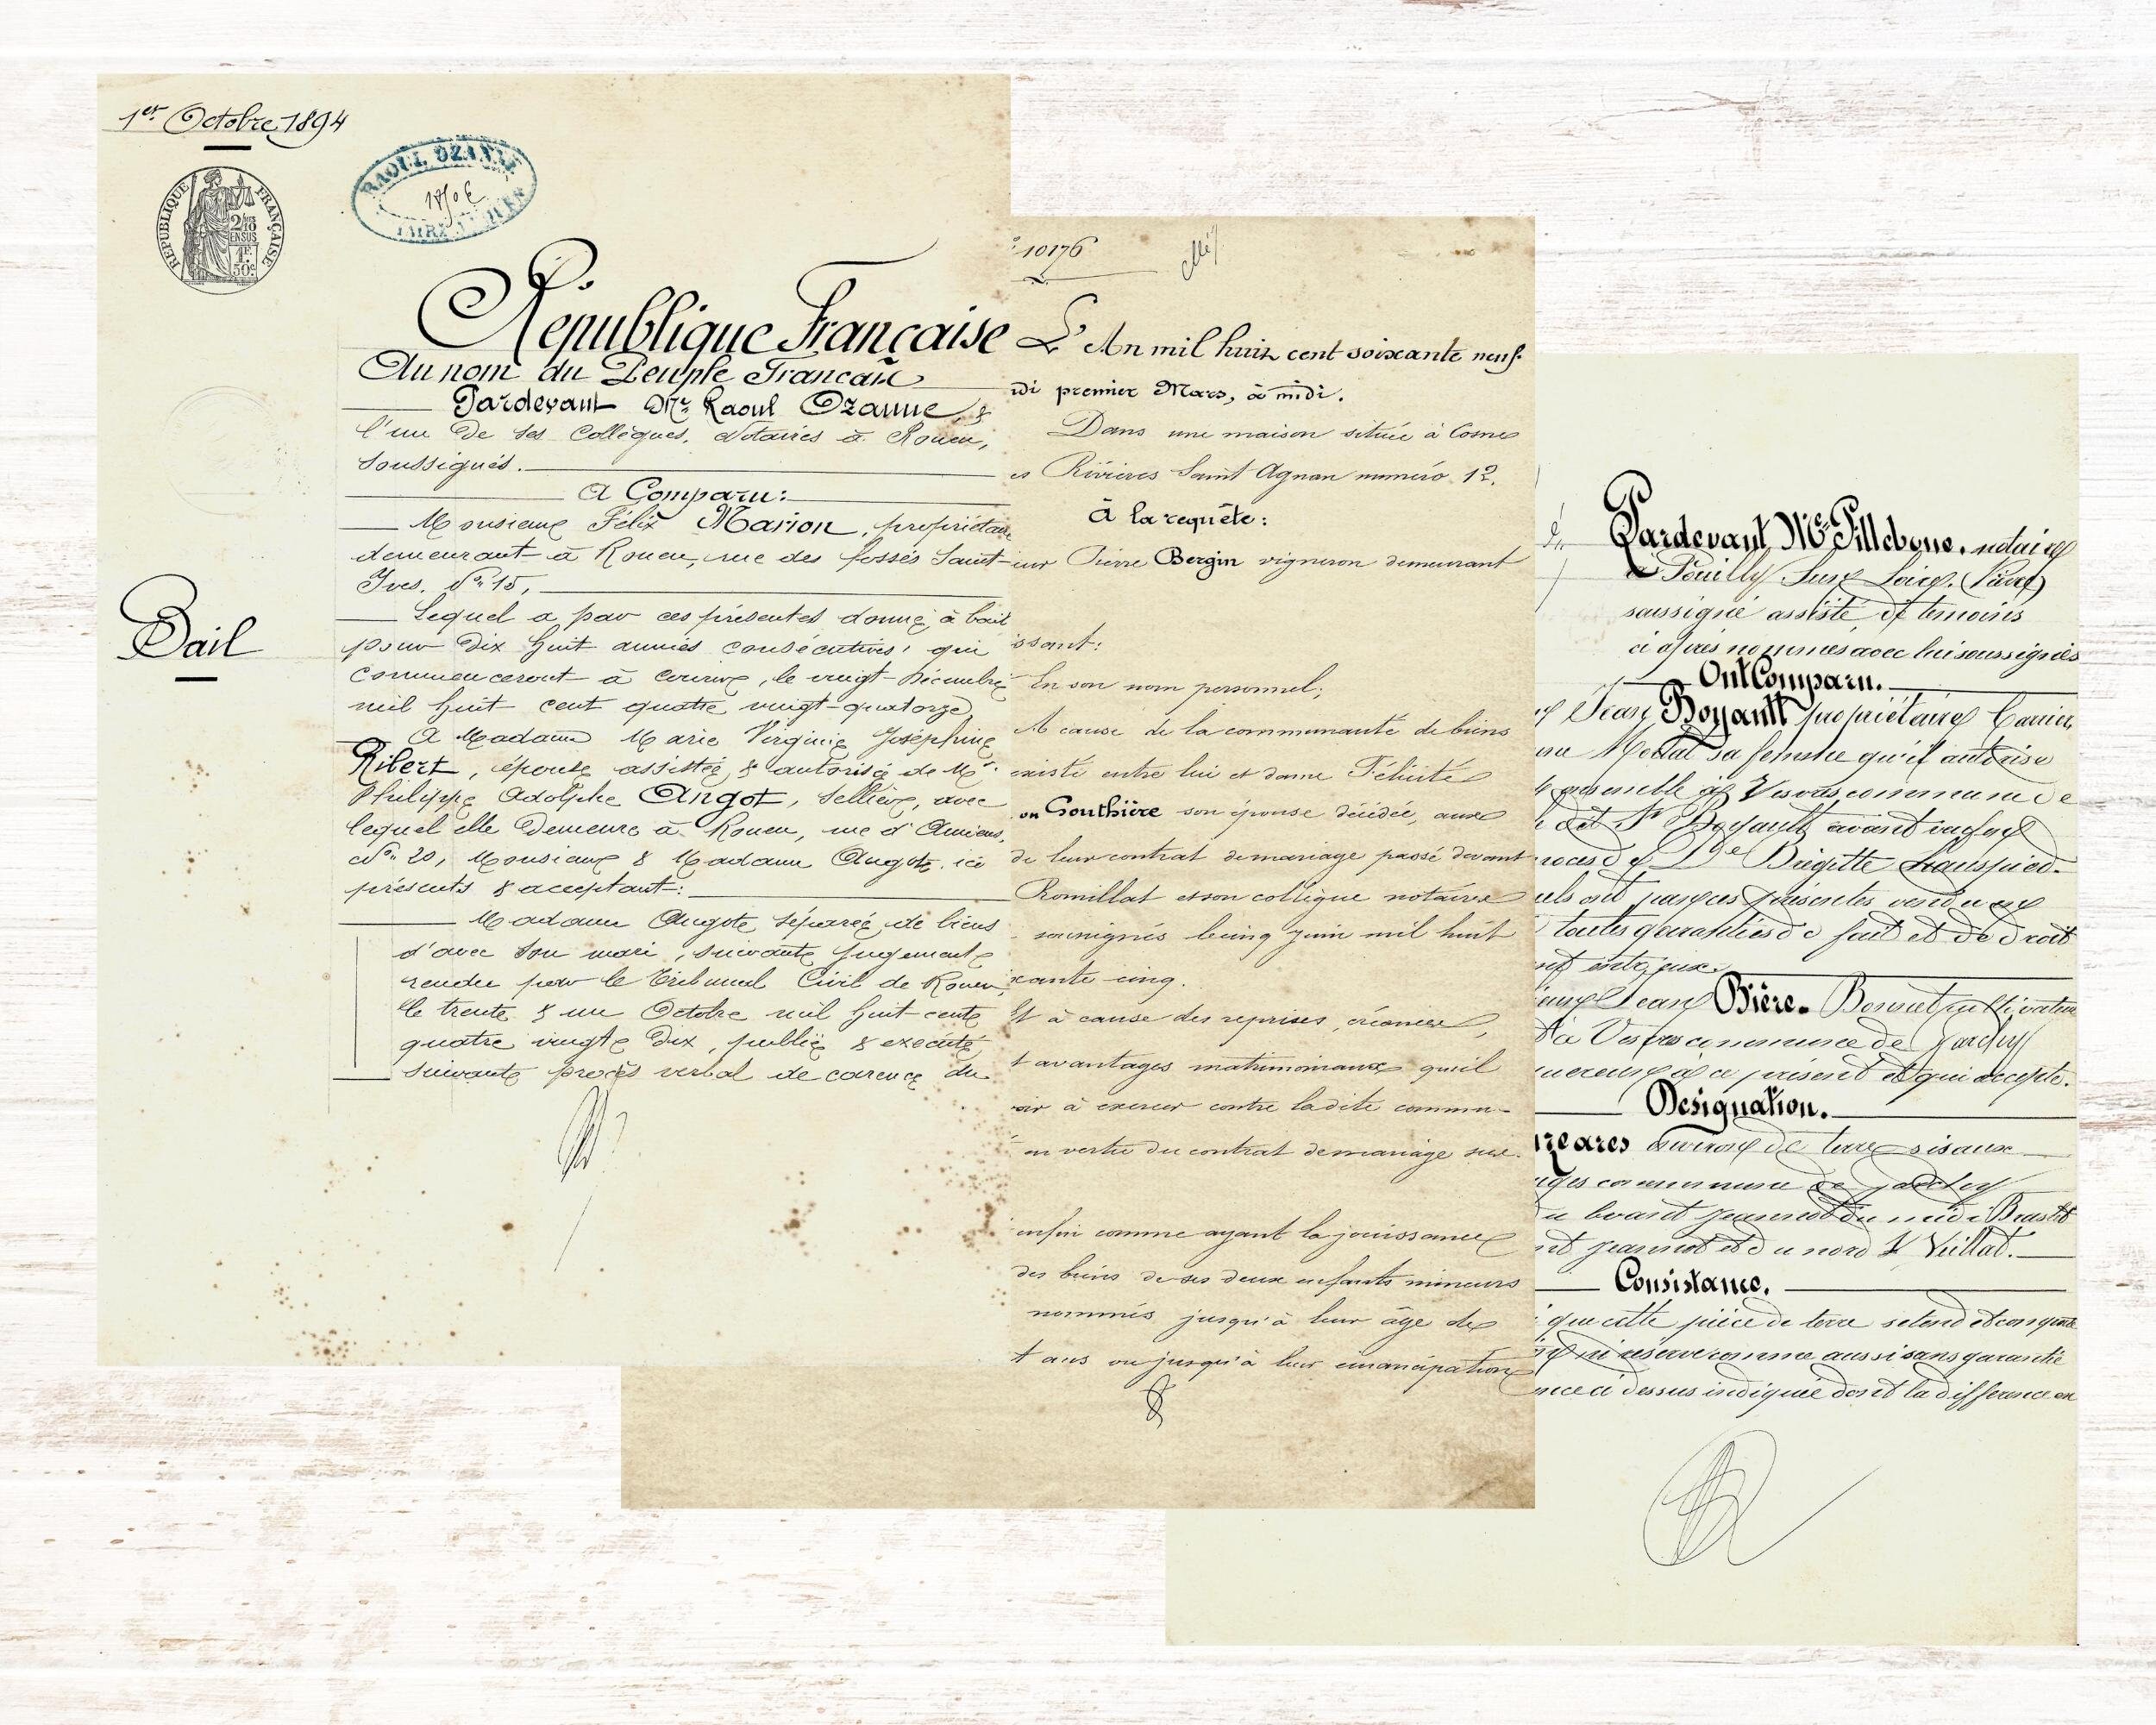 1er Octobre 1894
RÉPUBLIQUE FRANÇAISE
2/10 EN SUS
1F. 50c
RAOUL OZANNE
République Française
Au nom du Peuple Francais
Pardevant Me Raoul Ozanne, &
l'un de ses Collègues, Notaires à Rouen,
soussignés.
A Comparu:
Monsieur Félix Marion, propriétaire
demeurant à Rouen, rue des fossés Saint-
Yves, No 15,
Bail
Lequel a par ces présentes donné à bail
pour dix huit années consécutives, qui
commenceront à courir, le vingt-décembre
mil huit cent quatre vingt-quatorze,
A Madame Marie Virginie Joséphine
Ribert, épouse assistée & autorisée de Mr
Philippe Adolphe Angot, Sellière, avec
lequel elle demeure à Rouen, rue d'Amiens,
No 20, Monsieur & Madame Angot, ici
présents & acceptant:
Madame Angot séparée de biens
d'avec son mari, suivant jugement
rendu par le Tribunal Civil de Rouen,
le trente & un Octobre mil huit cent
quatre vingt dix, publié & exécuté
suivant procès verbal de carence du
10176
L'An mil huit cent soixante neuf
di premier Mars, à midi.
Dans une maison située à Cosne
es Rivières Saint Agnan numéro 12.
À la requête:
eur Pierre Bergin vigneron demeurant
issant:
En son nom personnel;
A cause de la communauté de biens
existé entre lui et dame Félicité
on Gouthière son épouse décédée, aux
de leur contrat de mariage passé devant
Romillat et son collègue notaires
soussignés le cinq juin mil huit
xante cinq.
Et à cause des reprises, créances,
t avantages matrimoniaux qu'il
oir à exercer contre ladite commu-
en vertu du contrat de mariage sus.
enfin comme ayant la jouissance
des biens de ses deux enfants mineurs
nommés jusqu'à leur âge de
t ans ou jusqu'à leur émancipation
Pardevant Me Pillebone, notaire
à Pouilly Sur Loire,
soussigné assisté de témoins
ci après nommés avec lui soussignés
Ont Comparu.
Jean Boyault propriétaire
sa femme qu'il autorise
ensemble à commune de
dit Sr Boyault avant
Dme Brigitte
ils ont par ces présentes vendu
toutes garanties de fait et de droit
Jean Bière. Bonnet cultivateur
commune de Garchy
à ce présent et qui accepte.
Désignation.
ze ares environ de terre sis aux
commune de Garchy
jeannot du midi
jeannot et du nord Veillat.
Consistance.
que cette pièce de terre s'étend et comporte
ni réserve comme aussi sans garantie
ce ci dessus indiquée dont la différence en